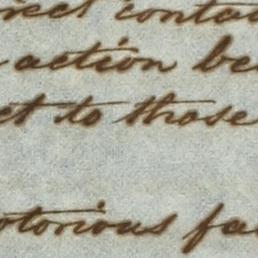 irect conta
action be
ct to those
otorious fa